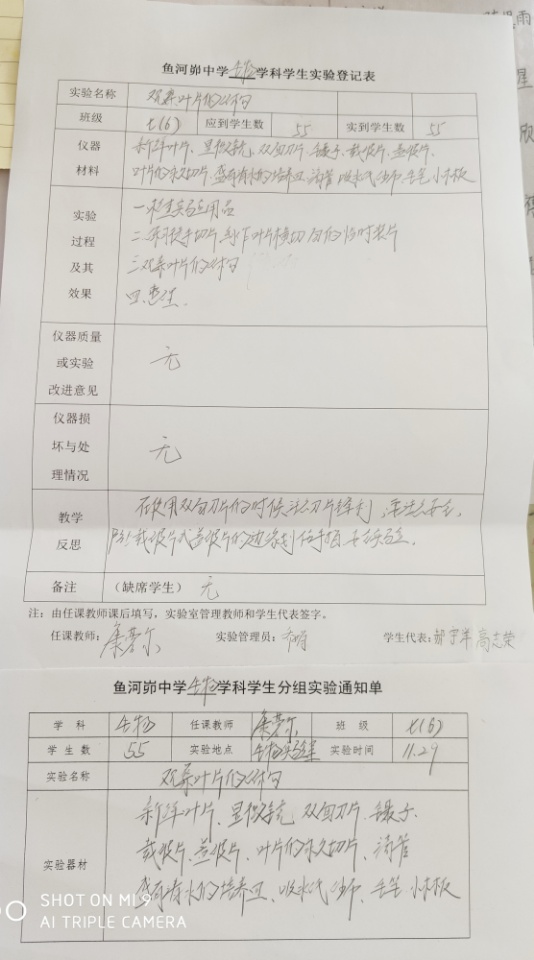 鱼河峁中学生物学科学生实验登记表
实验名称 观察叶片的结构
班级 七(6) 应到学生数 55 实到学生数 55
仪器材料 新鲜叶片、显微镜、双面刀片、镊子、载玻片、盖玻片、
叶片的永久切片、盛有清水的培养皿、滴管、吸水纸、纱布、毛笔、小木板
实验过程及其效果
一、检查实验用品
二、练习徒手切片、制作叶片横切面的临时装片
三、观察叶片的结构
四、整理。
仪器质量或实验改进意见 无
仪器损坏与处理情况 无
教学反思 在使用双面刀片的时候注意刀片锋利,注意安全,
防止载玻片或盖玻片的边缘划伤手指
备注 (缺席学生) 无
注:由任课教师课后填写,实验室管理教师和学生代表签字。
任课教师: 实验管理员: 学生代表: 高志荣
鱼河峁中学生物学科学生分组实验通知单
学科 生物 任课教师 班级 七(6)
学生数 55 实验地点 生物实验室 实验时间 11.29
实验名称 观察叶片的结构
实验器材 新鲜叶片、显微镜、双面刀片、镊子、
载玻片、盖玻片、叶片的永久切片、滴管
盛有清水的培养皿、吸水纸、纱布、毛笔、小木板
SHOT ON MI 9
AI TRIPLE CAMERA